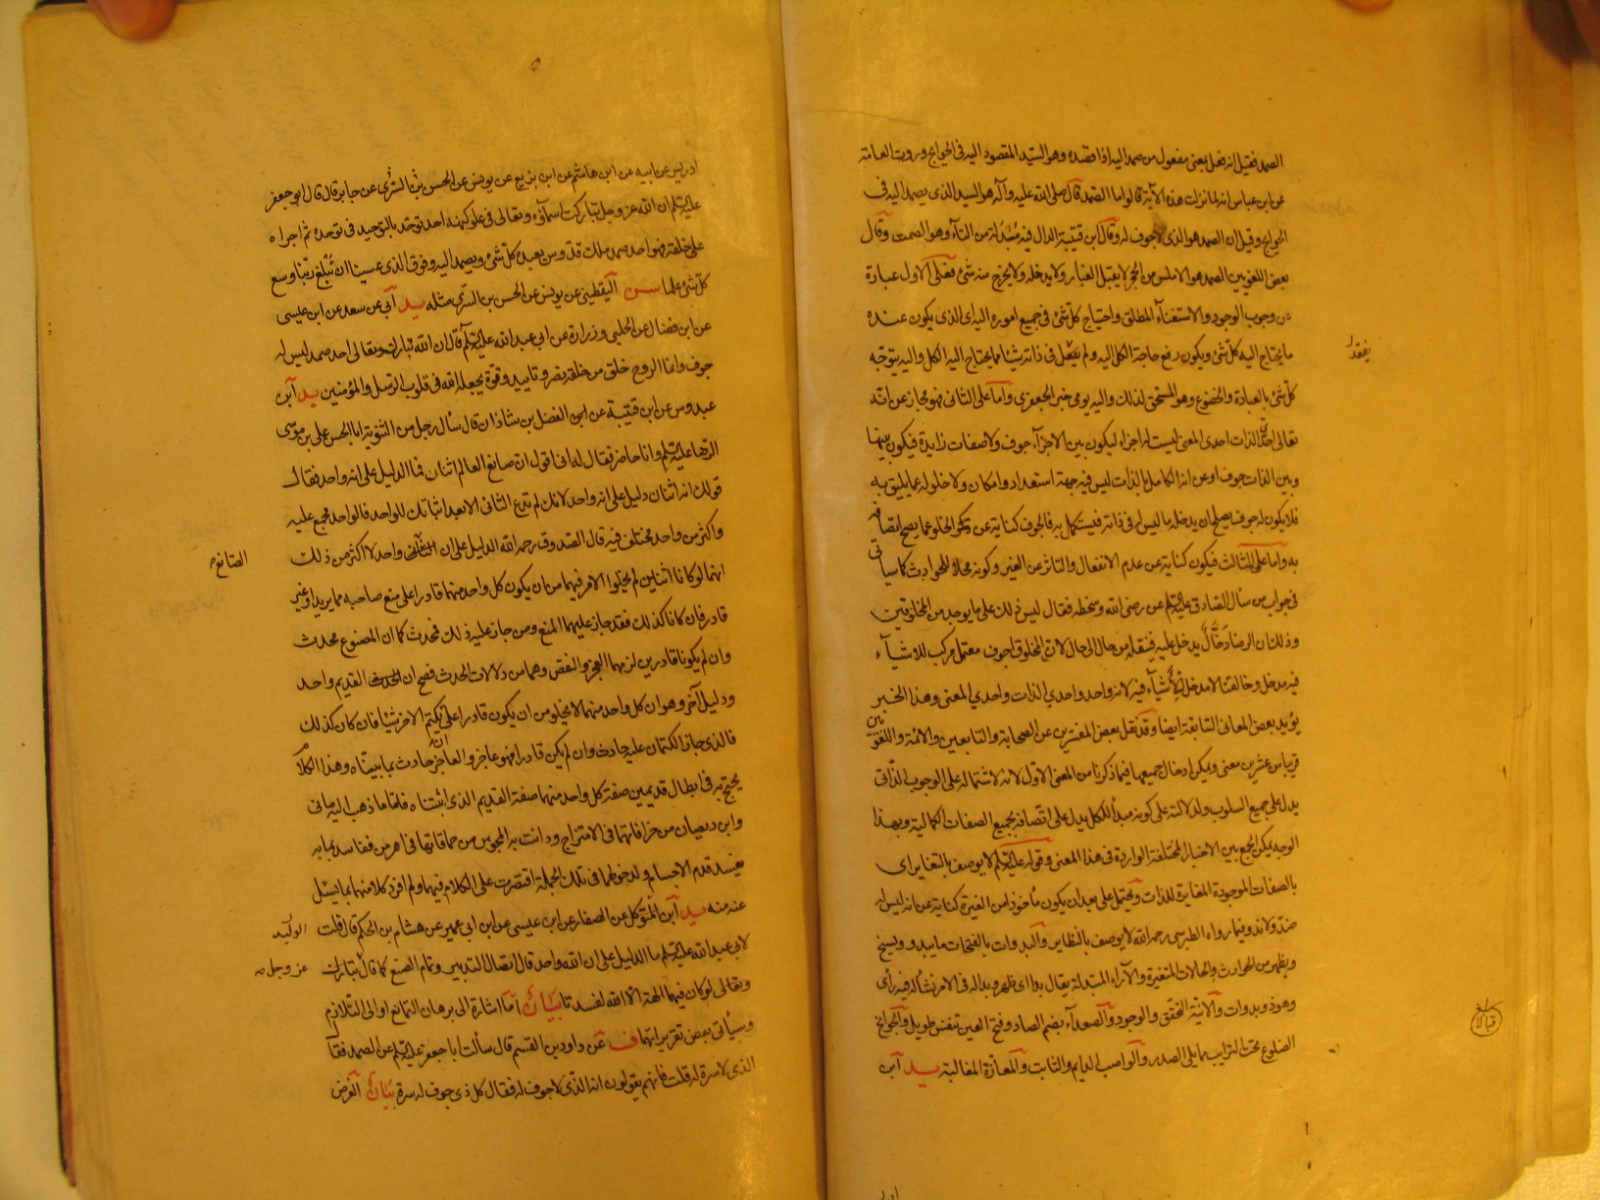 الصمد فقيل انه فعل بمعنى مفعول من صمد اليه اذا قصده وهو السيد المقصود اليه في الحوايج وروت العامة
عن ابن عباس انه لما نزلت هذه الآية قالوا ما الصمد قال صلى الله عليه وآله هو السيد الذي يصمد اليه في
الحوايج وقيل ان الصمد هو الذي لا جوف له وقال ابن قتيبة الدال فيه مبدلة من التاء وهو الصمت وقال
بعض اللغويين الصمد هو الاملس من الحجر لا يقبل الغبار ولا يدخله ولا يخرج منه شئ فعلى الاول عبارة
عن وجوب الوجود والاستغناء المطلق واحتياج كل شئ في جميع اموره اليه اي الذي يكون عنده
ما يحتاج اليه كل شئ ويكون رفع حاجة الكل اليه ولم يفقد في ذاته شيئا مما يحتاج اليه الكل واليه يتوجه
يفقد
كل شئ بالعبادة والخضوع وهو المستحق لذلك واليه يومي خبر الجعفري واما على الثاني فهو مجاز عن انه
تعالى احدي الذات احدي المعنى ليست له اجزاء ليكون بين الاجزاء جوف ولا صفات زايدة فيكون بينها
وبين الذات جوف او عن انه الكامل بالذات ليس فيه جهة استعداد وامكان ولا خلو له عما يليق به
فلا يكون له جوف يصلح ان يدخله ما ليس له في ذاته فيستكمل به فالجوف كناية عن الخلو عما يصح اتصافه
به واما على الثالث فيكون كناية عن عدم الانفعال والتاثر عن الغير وكونه محلا للحوادث كما سيأتي
في جواب من سأل الصادق عليه السلم عن رضى الله وسخطه فقال ليس ذلك على ما يوجد من المخلوقين
وذلك ان الرضا دخال يدخل عليه فينقله من حال الى حال لان المخلوق اجوف معتمل مركب للاشياء
فيه مدخل وخالقنا لا مدخل للأشياء فيه لانه واحد واحدي الذات واحدي المعنى وهذا الخبر
يؤيد بعض المعاني السابقة ايضا وقد نقل بعض المفسرين عن الصحابة والتابعين والائمة واللغويين
قريبا من عشرين معنى ويمكن ادخال جميعها فيما ذكرنا من المعنى الاول لانه لاشتماله على الوجوب الذاتي
يدل على جميع السلوب ولدلالته على كونه مبدأ للكل يدل على اتصافه بجميع الصفات الكمالية وبهذا
الوجه يمكن الجمع بين الاخبار المختلفة الواردة في هذا المعنى وقوله عليه السلم لا يوصف بالتغاير اي
بالصفات الموجودة المغايرة للذات ويحتمل على بعد ان يكون مأخوذا من الغيرة كناية عن انه ليس له
ضد ولا ند وفيما رواه الطبرسي رحمه الله لا يوصف بالنظاير والبدوات بالفتحات ما يبدو ويسنح
ويظهر من الحوادث والحالات المتغيرة والآراء المتبدلة يقال بدا اي ظهر وبدا له في الامر نشأ له فيه رأى
وهو ذو بدوات والانية التحقق والوجود والصعداء بضم الصاد وفتح العين تنفس طويل والجوانح
الضلوع تحت الترايب مما يلي الصدر والواصب الدايم والثابت والمعازة المغالبة يد ابن
ادر
ادريس عن ابيه عن ابن هاشم عن ابن بزيع عن يونس عن الحسن بن السري عن جابر قال قال ابو جعفر
عليه السلم ان الله عز وجل تباركت اسماؤه وتعالى في علو كنهه احد توحد بالتوحيد في توحده ثم اجراه
على خلقه فهو احد صمد ملك قدوس يعبده كل شئ ويصمد اليه وفوق الذي عسينا ان نبلغ ربنا وسع
كل شئ علما سن اليقطيني عن يونس عن الحسن بن السري مثله يد ابي عن سعد عن ابن عيسى
عن ابن فضال عن الحلبي وزرارة عن ابي عبد الله عليه السلم قال ان الله تبارك وتعالى احد صمد ليس له
جوف وانما الروح خلق من خلقه نصر وتاييد وقوة يجعله الله في قلوب الرسل والمؤمنين يد ابن
عبدوس عن ابن قتيبة عن ابن الفضل بن شاذان قال سأل رجل من الثنوية ابا الحسن على بن موسى
الرضا عليه السلم وانا حاضر فقال له اني اقول ان صانع العالم اثنان فما الدليل على انه واحد فقال
قولك انه اثنان دليل على انه واحد لانك لم تدع الثاني الا بعد اثباتك للواحد فالواحد مجمع عليه
واكثر من واحد مختلف فيه قال الصدوق رحمه الله الدليل على ان واحد لا اكثر من ذلك
الصانع
انهما لو كانا اثنين لم يخلوا الامر فيهما من ان يكون كل واحد منهما قادرا على منع صاحبه مما يريد او غير
قادر فان كانا كذلك فقد جاز عليهما المنع ومن جاز عليه ذلك فمحدث كما ان المصنوع محدث
وان لم يكونا قادرين لزمهما العجز والنقص وهما من دلالات الحدث فصح ان القديم واحد
ودليل آخر وهو ان كل واحد منهما لا يخلو من ان يكون قادرا على ان يكتم الاخر شيئا فان كان كذلك
فالذي جاز الكتمان عليه حادث وان لم يكن قادرا فهو عاجز والعاجز حادث بما بيناه وهذا الكلام
يحتج به في ابطال قديمين صفة كل واحد منهما صفة القديم الذي اثبتناه فاما ما ذهب اليه ماني
وابن ديصان من خرافاتهما في الامتزاج ودانت به المجوس من حماقاتها في اهرمن ففاسد بما به
يفسد قدم الاجسام ولدخولهما في تلك الجملة اقتصرت على الكلام فيهما ولم افرد كلا منهما بما يسئل
عنه منه يد ابن المتوكل عن الصفار عن ابن عيسى عن ابن ابي عمير عن هشام بن الحكم قال قلت
لابي عبد الله عليه السلم ما الدليل على ان الله واحد قال اتصال التدبير وتمام الصنع كما قال تبارك
عز وجل
وتعالى لو كان فيهما الهة الا الله لفسدتا بيان اما اشارة الى برهان التمانع او الى التلازم
وسيأتي بعض تقريراتهما ف عن داود بن القسم قال سألت ابا جعفر عليه السلم عن الصمد فقال
الذي لا سرة له قلت فانهم يقولون انه الذي لا جوف له فقال كل ذي جوف له سرة بيان الغرض